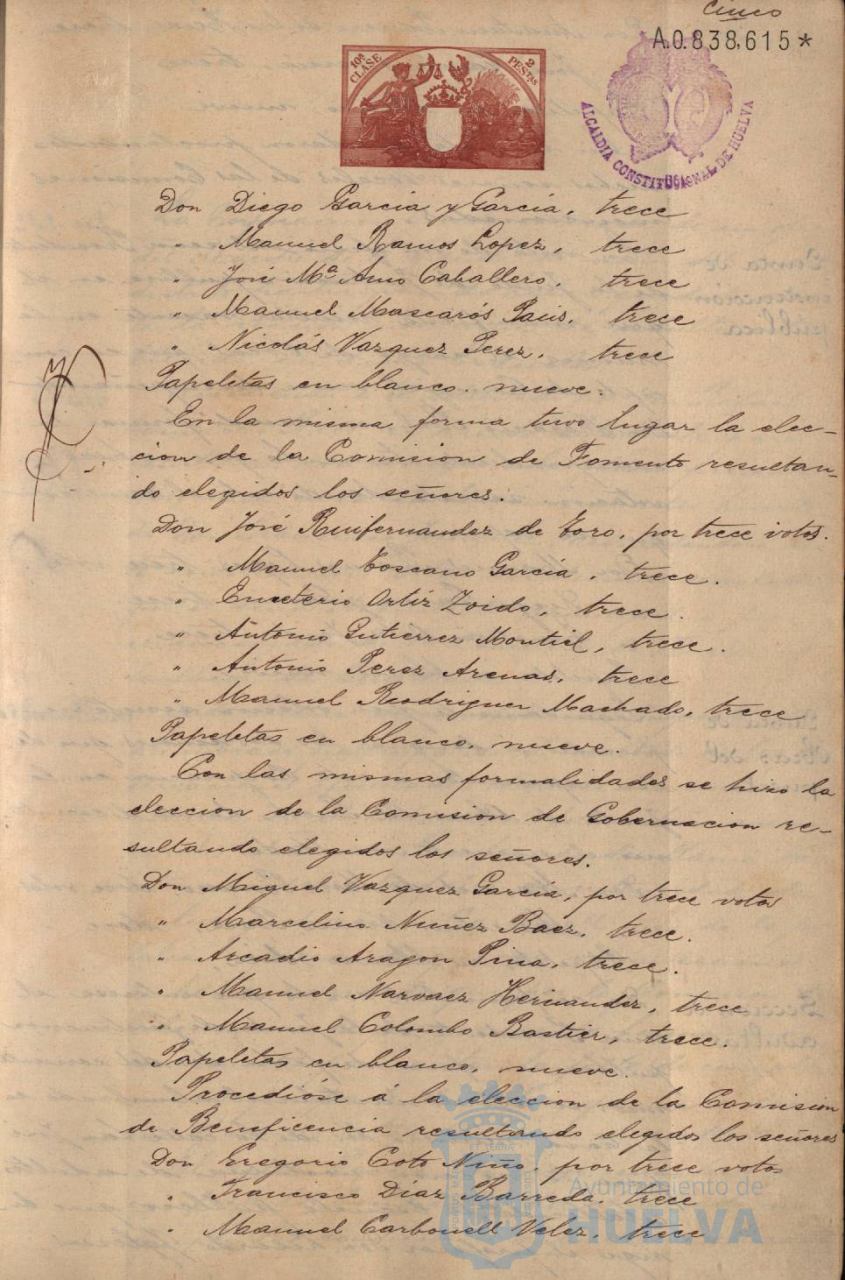 cinco
A.0.838,615*
10ª CLASE 2 PESTAS
ALCALDIA CONSTITUCIONAL DE HUELVA
Don Diego Garcia y Garcia, trece
" Manuel Ramos Lopez, trece
" José Mª Amo Caballero, trece
" Manuel Mascarós Pais, trece
" Nicolás Vazquez Perez, trece
Papeletas en blanco, nueve.
En la misma forma tuvo lugar la elec-
cion de la Comision de Fomento resultan-
do elegidos los señores:
Don José Ruifernandez de Toro, por trece votos.
" Manuel Toscano Garcia, trece.
" Emeterio Ortiz Zoido, trece.
" Antonio Gutierrez Montiel, trece.
" Antonio Perez Arenas, trece
" Manuel Rodriguez Machado, trece
Papeletas en blanco, nueve.
Con las mismas formalidades se hizo la
eleccion de la Comision de Gobernacion re-
sultando elegidos los señores.
Don Miguel Vazquez Garcia, por trece votos
" Marcelino Nuñez Baez, trece.
" Arcadio Aragon Pina, trece.
" Manuel Narvaez Hernandez, trece
" Manuel Colombo Bastier, trece.
Papeletas en blanco, nueve.
Procedióse á la eleccion de la Comision
de Beneficencia resultando elegidos los señores
Don Gregorio Coto Niño, por trece votos
" Francisco Diaz Barreda, trece
" Manuel Carbonell Velez, trece
Ayuntamiento de
HUELVA